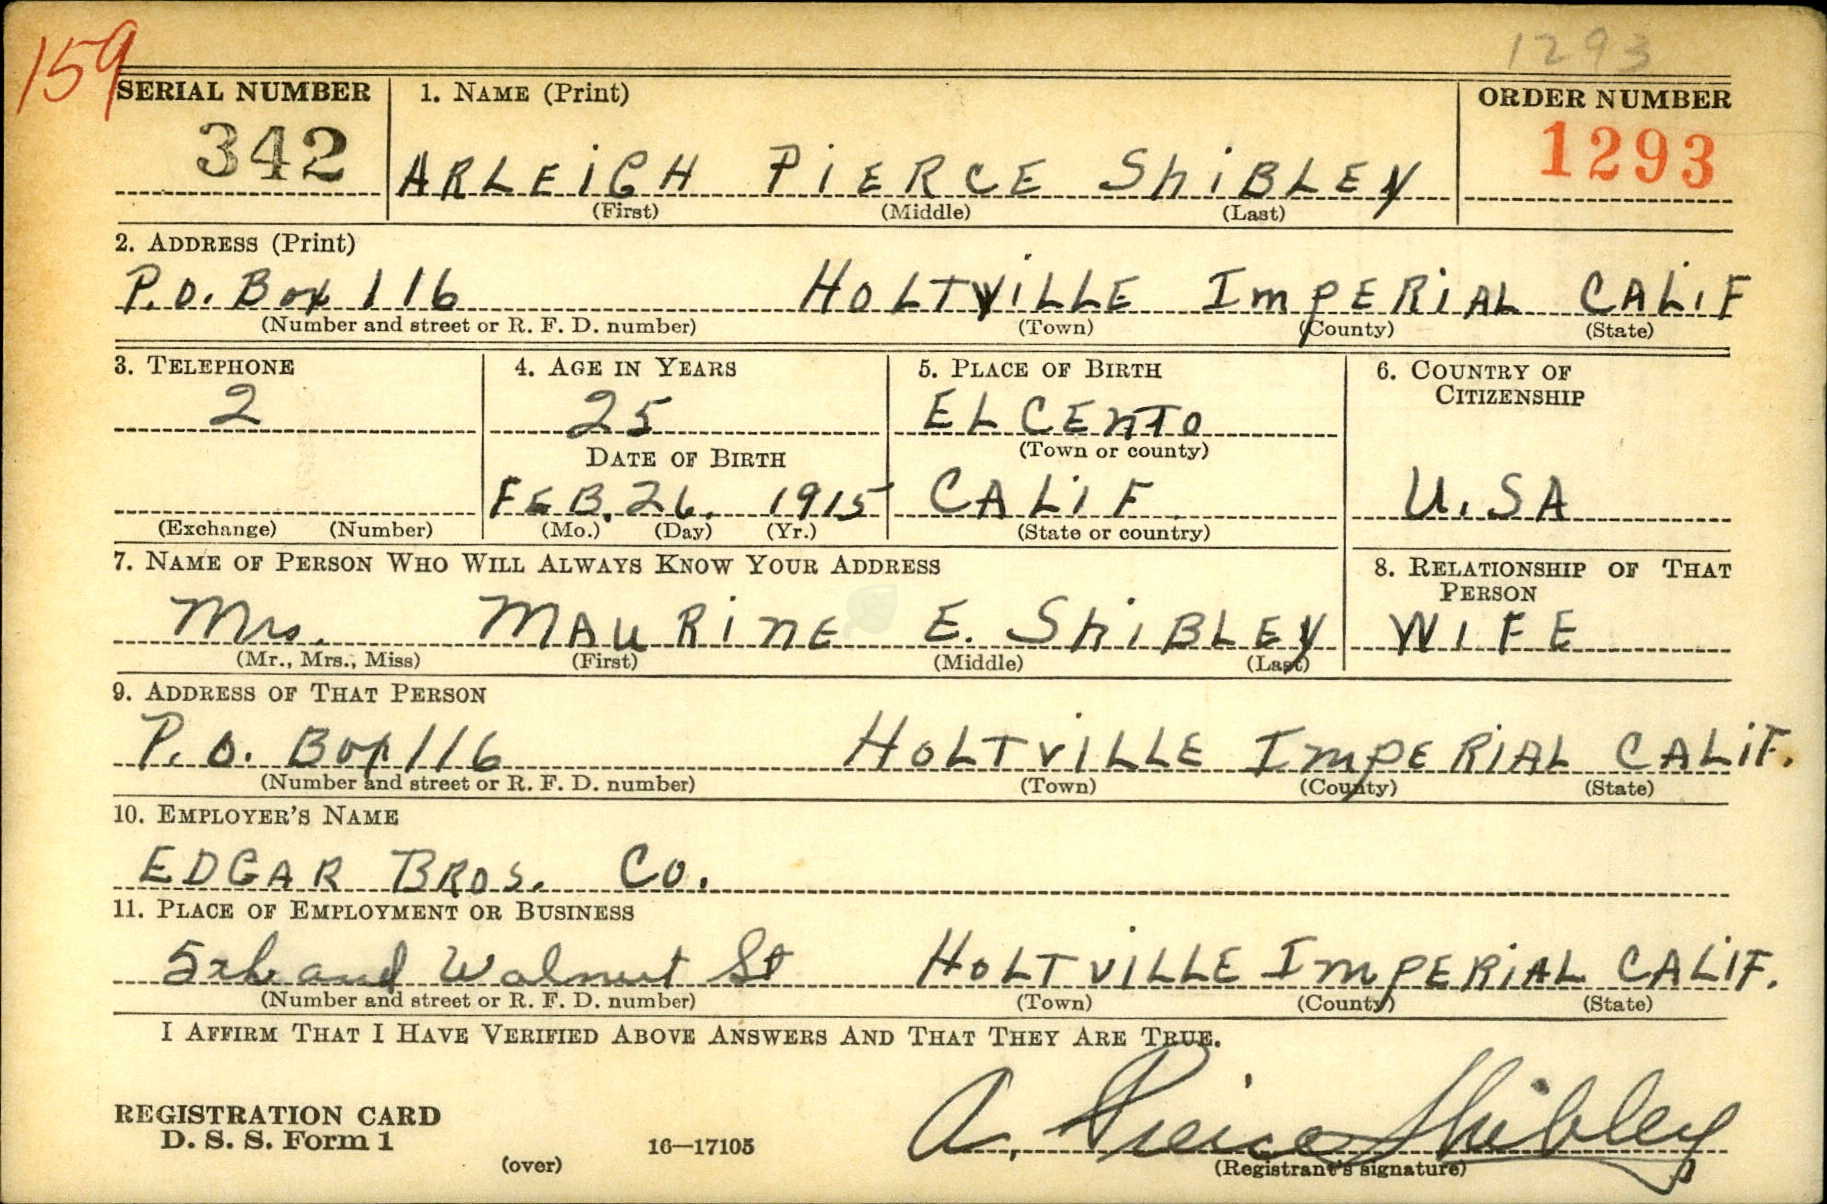 159
1293
SERIAL NUMBER 1. NAME (Print) ORDER NUMBER
342 ARLEIGH PIERCE ShiBLEY 1293
(First) (Middle) (Last)
2. ADDRESS (Print)
P.O. Box 116 HOLTVILLE ImpERiAL CALiF
(Number and street or R. F. D. number) (Town) (County) (State)
3. TELEPHONE 4. AGE IN YEARS 5. PLACE OF BIRTH 6. COUNTRY OF
CITIZENSHIP
2 25 EL CEnTO
DATE OF BIRTH (Town or county)
FEB. 26, 1915 CALiF U.SA
(Exchange) (Number) (Mo.) (Day) (Yr.) (State or country)
7. NAME OF PERSON WHO WILL ALWAYS KNOW YOUR ADDRESS 8. RELATIONSHIP OF THAT
PERSON
Mrs. MAURinE E. ShiBLEY WIFE
(Mr., Mrs., Miss) (First) (Middle) (Last)
9. ADDRESS OF THAT PERSON
P.O. Box 116 HOLTVILLE ImpERiAL CALiF.
(Number and street or R. F. D. number) (Town) (County) (State)
10. EMPLOYER'S NAME
EDGAR BROS. CO.
11. PLACE OF EMPLOYMENT OR BUSINESS
5th and Walnut St HOLTVILLE ImPERiAL CALiF.
(Number and street or R. F. D. number) (Town) (County) (State)
I AFFIRM THAT I HAVE VERIFIED ABOVE ANSWERS AND THAT THEY ARE TRUE.
REGISTRATION CARD
D. S. S. Form 1 16—17105 A. Pierce Shibley
(over) (Registrant's signature)